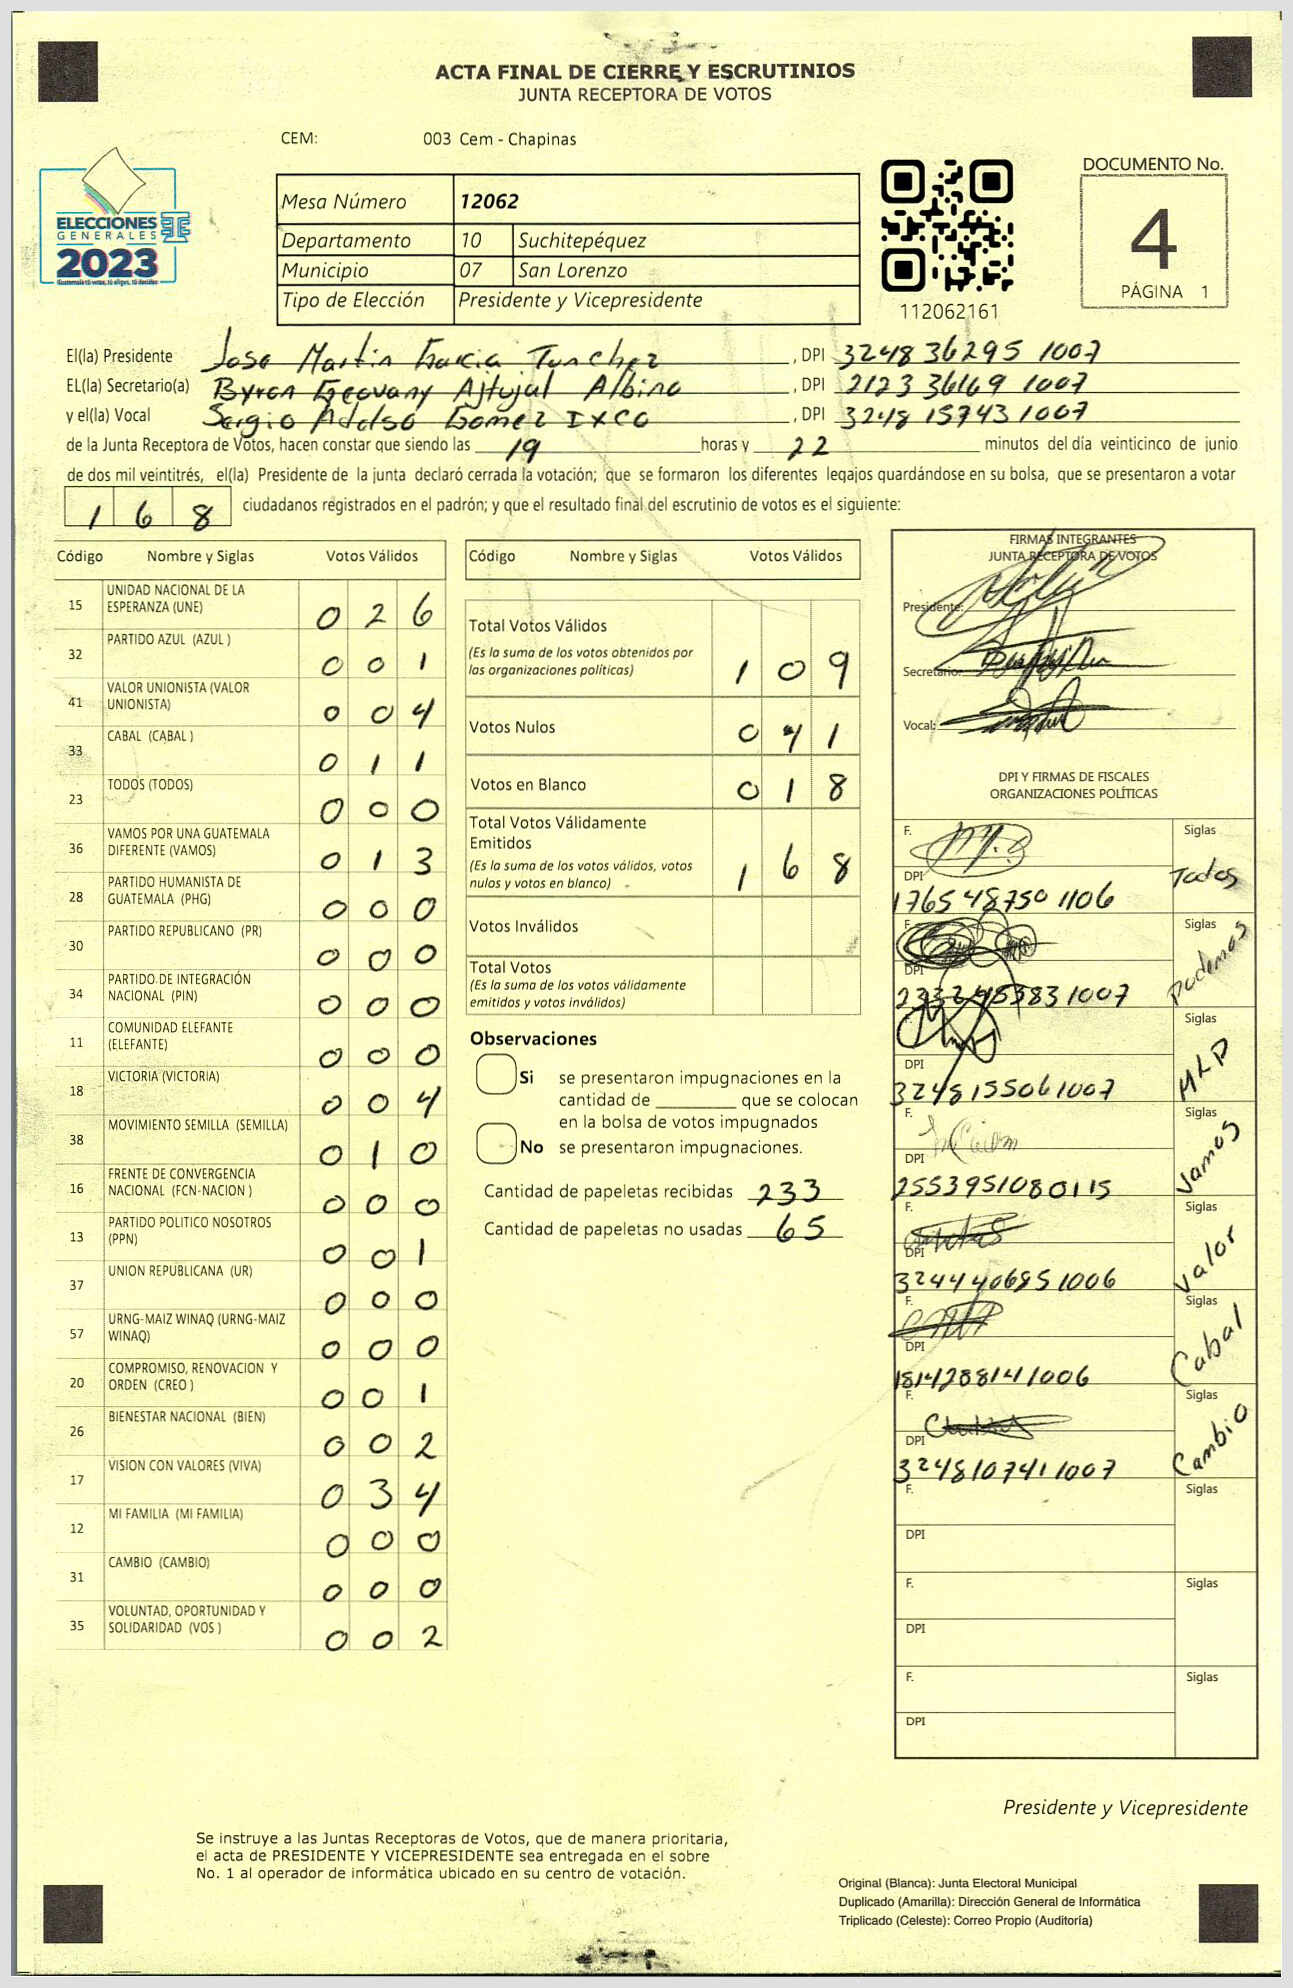 ACTA FINAL DE CIERRE Y ESCRUTINIOS
JUNTA RECEPTORA DE VOTOS
CEM: 003 Cem - Chapinas
ELECCIONES
GENERALES
2023
Mesa Número 12062
Departamento 10 Suchitepéquez
Municipio 07 San Lorenzo
Tipo de Elección Presidente y Vicepresidente
112062161
DOCUMENTO No.
4
PÁGINA 1
El(la) Presidente Jose Martin Garcia Tunchez , DPI 324836295 1007
EL(la) Secretario(a) Byron Geovany Ajtujal Albino , DPI 2123 36169 1007
y el(la) Vocal Sergio Adolso Gomez IXCO , DPI 3248 15743 1007
de la Junta Receptora de Votos, hacen constar que siendo las 19 horas y 22 minutos del día veinticinco de junio
de dos mil veintitrés, el(la) Presidente de la junta declaró cerrada la votación; que se formaron los diferentes legajos guardándose en su bolsa, que se presentaron a votar
168 ciudadanos registrados en el padrón; y que el resultado final del escrutinio de votos es el siguiente:
Código Nombre y Siglas Votos Válidos
15 UNIDAD NACIONAL DE LA ESPERANZA (UNE) 0 2 6
32 PARTIDO AZUL (AZUL ) 0 0 1
41 VALOR UNIONISTA (VALOR UNIONISTA) 0 0 4
33 CABAL (CABAL ) 0 1 1
23 TODOS (TODOS) 0 0 0
36 VAMOS POR UNA GUATEMALA DIFERENTE (VAMOS) 0 1 3
28 PARTIDO HUMANISTA DE GUATEMALA (PHG) 0 0 0
30 PARTIDO REPUBLICANO (PR) 0 0 0
34 PARTIDO DE INTEGRACIÓN NACIONAL (PIN) 0 0 0
11 COMUNIDAD ELEFANTE (ELEFANTE) 0 0 0
18 VICTORIA (VICTORIA) 0 0 4
38 MOVIMIENTO SEMILLA (SEMILLA) 0 1 0
16 FRENTE DE CONVERGENCIA NACIONAL (FCN-NACION ) 0 0 0
13 PARTIDO POLITICO NOSOTROS (PPN) 0 0 1
37 UNION REPUBLICANA (UR) 0 0 0
57 URNG-MAIZ WINAQ (URNG-MAIZ WINAQ) 0 0 0
20 COMPROMISO, RENOVACION Y ORDEN (CREO ) 0 0 1
26 BIENESTAR NACIONAL (BIEN) 0 0 2
17 VISION CON VALORES (VIVA) 0 3 4
12 MI FAMILIA (MI FAMILIA) 0 0 0
31 CAMBIO (CAMBIO) 0 0 0
35 VOLUNTAD, OPORTUNIDAD Y SOLIDARIDAD (VOS ) 0 0 2
Código Nombre y Siglas Votos Válidos
Total Votos Válidos 1 0 9
(Es la suma de los votos obtenidos por
las organizaciones políticas)
Votos Nulos 0 4 1
Votos en Blanco 0 1 8
Total Votos Válidamente
Emitidos 1 6 8
(Es la suma de los votos válidos, votos
nulos y votos en blanco)
Votos Inválidos
Total Votos
(Es la suma de los votos válidamente
emitidos y votos inválidos)
Observaciones
Si se presentaron impugnaciones en la
cantidad de ________ que se colocan
en la bolsa de votos impugnados
No se presentaron impugnaciones.
Cantidad de papeletas recibidas 233
Cantidad de papeletas no usadas 65
FIRMAS INTEGRANTES
JUNTA RECEPTORA DE VOTOS
Presidente:
Secretario:
Vocal:
DPI Y FIRMAS DE FISCALES
ORGANIZACIONES POLÍTICAS
F. Siglas
DPI Todos
1765 48750 1106
F. Siglas
DPI podemos
1007
Siglas
DPI MLP
3248155061007
F. Siglas
DPI Vamos
2553951080115
F. Siglas
DPI Valor
3244406851006
F. Siglas
DPI Cabal
1814288141006
F. Siglas
DPI Cambio
3248107411007
F. Siglas
DPI
F. Siglas
DPI
F. Siglas
DPI
Presidente y Vicepresidente
Se instruye a las Juntas Receptoras de Votos, que de manera prioritaria,
el acta de PRESIDENTE Y VICEPRESIDENTE sea entregada en el sobre
No. 1 al operador de informática ubicado en su centro de votación.
Original (Blanca): Junta Electoral Municipal
Duplicado (Amarilla): Dirección General de Informática
Triplicado (Celeste): Correo Propio (Auditoría)